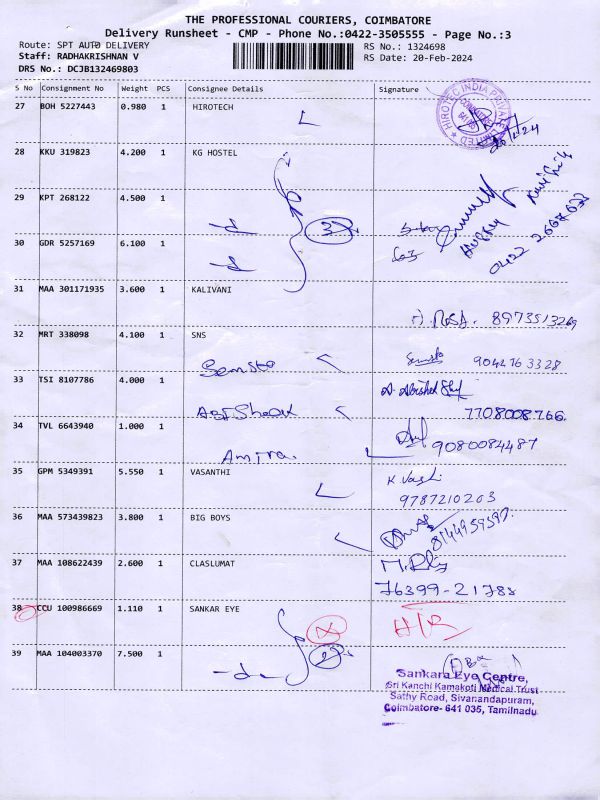 THE PROFESSIONAL COURIERS, COIMBATORE
Delivery Runsheet - CMP - Phone No.:0422-3505555 - Page No.:3
Route: SPT AUTO DELIVERY
RS No.: 1324698
Staff: RADHAKRISHNAN V
RS Date: 20-Feb-2024
DRS No.: DCJB132469803
S No Consignment No Weight PCS Consignee Details Signature
27 BOH 5227443 0.980 1 HIROTECH
HIROTEC INDIA PRIVATE LIMITED
28 KKU 319823 4.200 1 KG HOSTEL
29 KPT 268122 4.500 1
-d-
30 GDR 5257169 6.100 1
-d-
0422 2667633
31 MAA 301171935 3.600 1 KALIVANI
8973513269
32 MRT 338098 4.100 1 SNS
9042763328
33 TSI 8107786 4.000 1
7708008766.
34 TVL 6643940 1.000 1
Amira.
9080084487
35 GPM 5349391 5.550 1 VASANTHI
9787210203
36 MAA 573439823 3.800 1 BIG BOYS
37 MAA 108622439 2.600 1 CLASLUMAT
76399-21788
38 CCU 100986669 1.110 1 SANKAR EYE
39 MAA 104003370 7.500 1
-d-
Sankara Eye Centre,
Sri Kanchi Kamakoti Medical Trust
Sathy Road, Sivanandapuram,
Coimbatore- 641 035, Tamilnadu